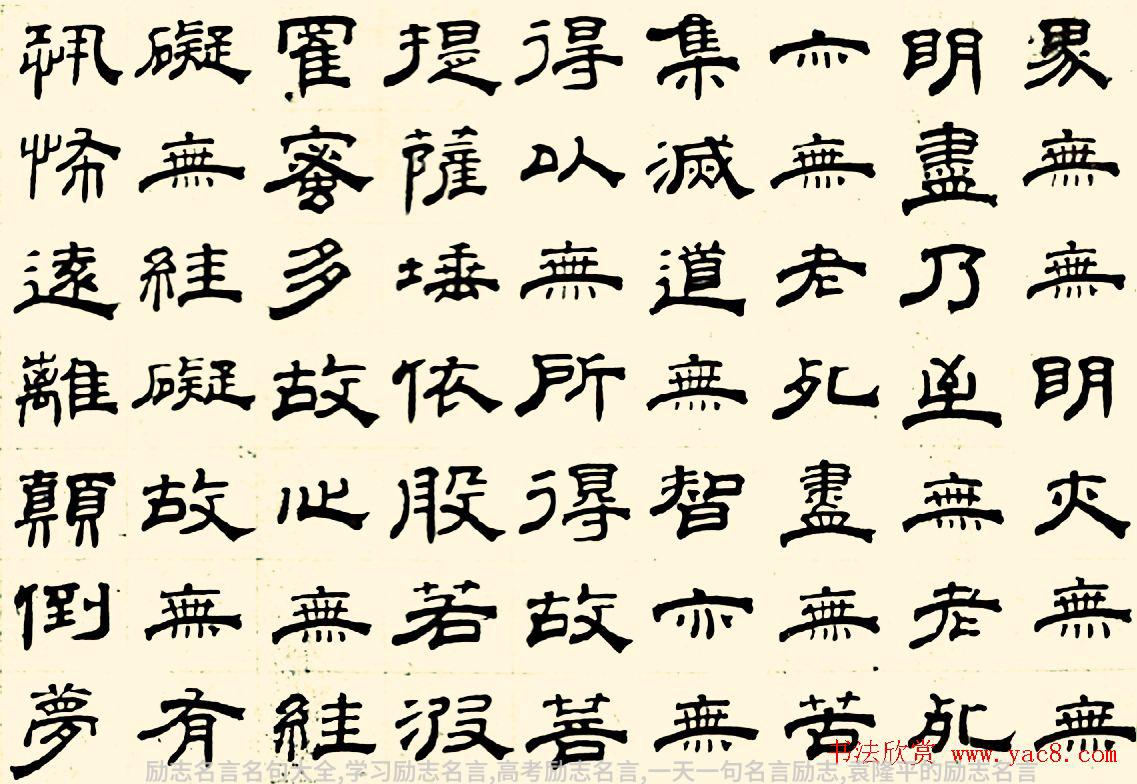 界無無明亦無無
明盡乃至無老死
亦無老死盡無苦
集滅道無智亦無
得以無所得故菩
提薩埵依般若波
羅蜜多故心無絓
礙無絓礙故無有
恐怖遠離顛倒夢
书法欣赏 www.yac8.com
励志名言名句大全,学习励志名言,高考励志名言,一天一句名言励志,袁隆平的励志名言